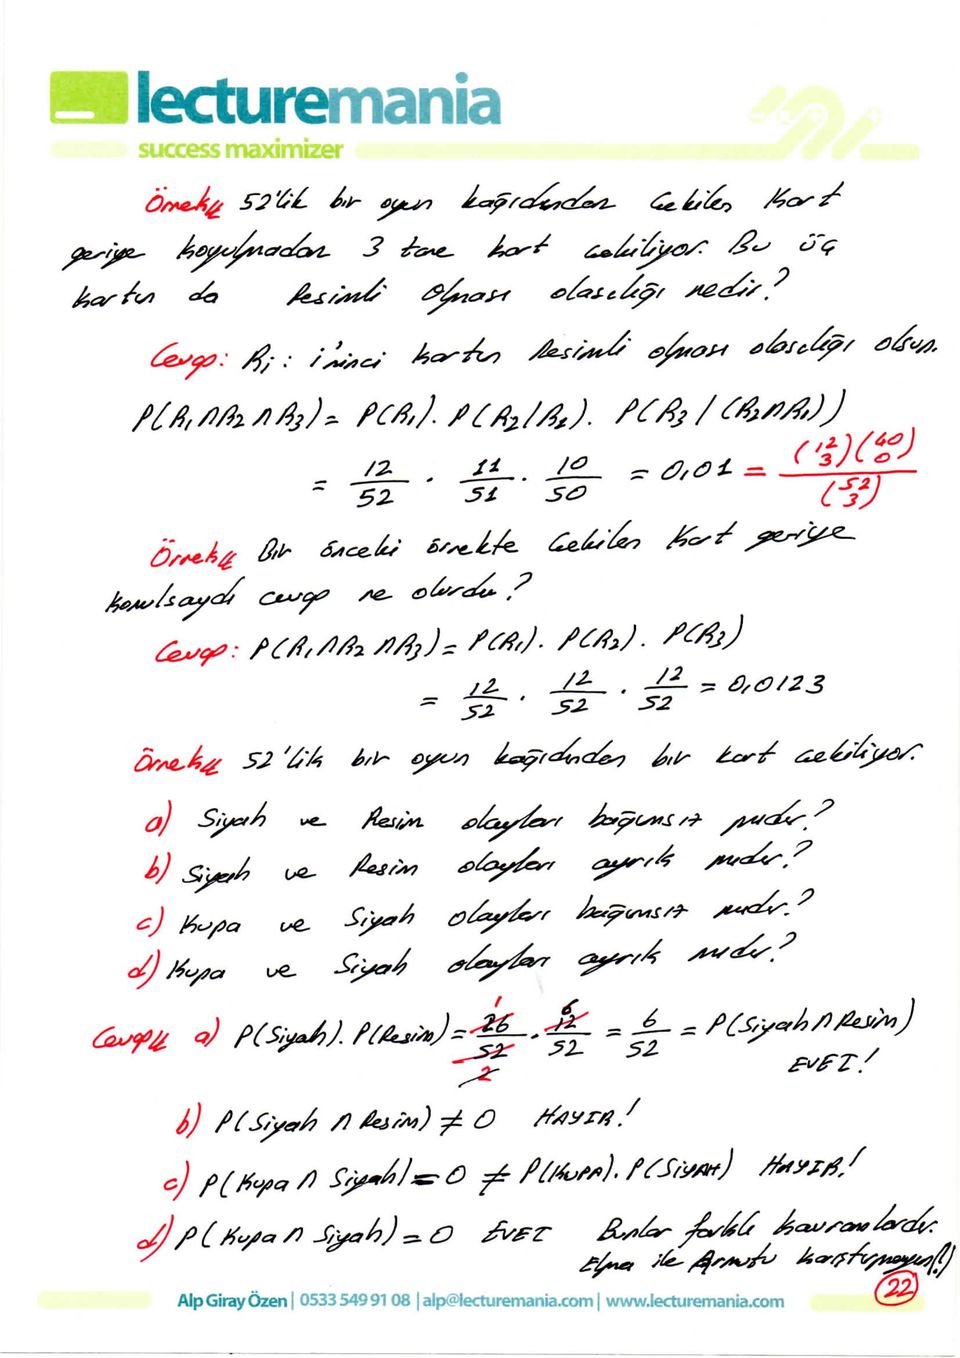 lecturemania
success maximizer
Örnek// 52'lik bir oyun kağıdından Çekilen Kart
geriye koyulmadan 3 tane kart çekiliyor. Bu üç
kartın da Resimli Olması olasılığı nedir?
Cevap: Ri : i'ninci kartın Resimli olması olasılığı olsun.
P(R1 ∩ R2 ∩ R3) = P(R1). P(R2/R1). P(R3 / (R2∩R1))
= 12/52 . 11/51 . 10/50 = 0,01 = (12 3)(40 0) / (52 3)
Örnek// Bir önceki örnekte Çekilen Kart geriye
konulsaydı cevap ne olurdu?
Cevap: P(R1 ∩ R2 ∩ R3) = P(R1). P(R2). P(R3)
= 12/52 . 12/52 . 12/52 = 0,0123
Örnek// 52'lik bir oyun kağıdından bir kart çekiliyor.
a) Siyah ve Resim olayları bağımsız mıdır?
b) Siyah ve Resim olayları ayrık mıdır?
c) Kupa ve Siyah olayları bağımsız mıdır?
d) Kupa ve Siyah olayları ayrık mıdır?
Cevap// a) P(Siyah). P(Resim) = 26/52 . 12/52 = 6/52 = P(Siyah ∩ Resim)
1 2 6
EVET!
b) P(Siyah ∩ Resim) ≠ 0 HAYIR!
c) P(Kupa ∩ Siyah) = 0 ≠ P(KUPA). P(SiYAH) HAYIR!
d) P(Kupa ∩ Siyah) = 0 EVET Bunlar farklı kavramlardır.
Elma ile Armutu karıştırmayın(!)
22
Alp Giray Özen | 0533 549 91 08 | alp@lecturemania.com | www.lecturemania.com